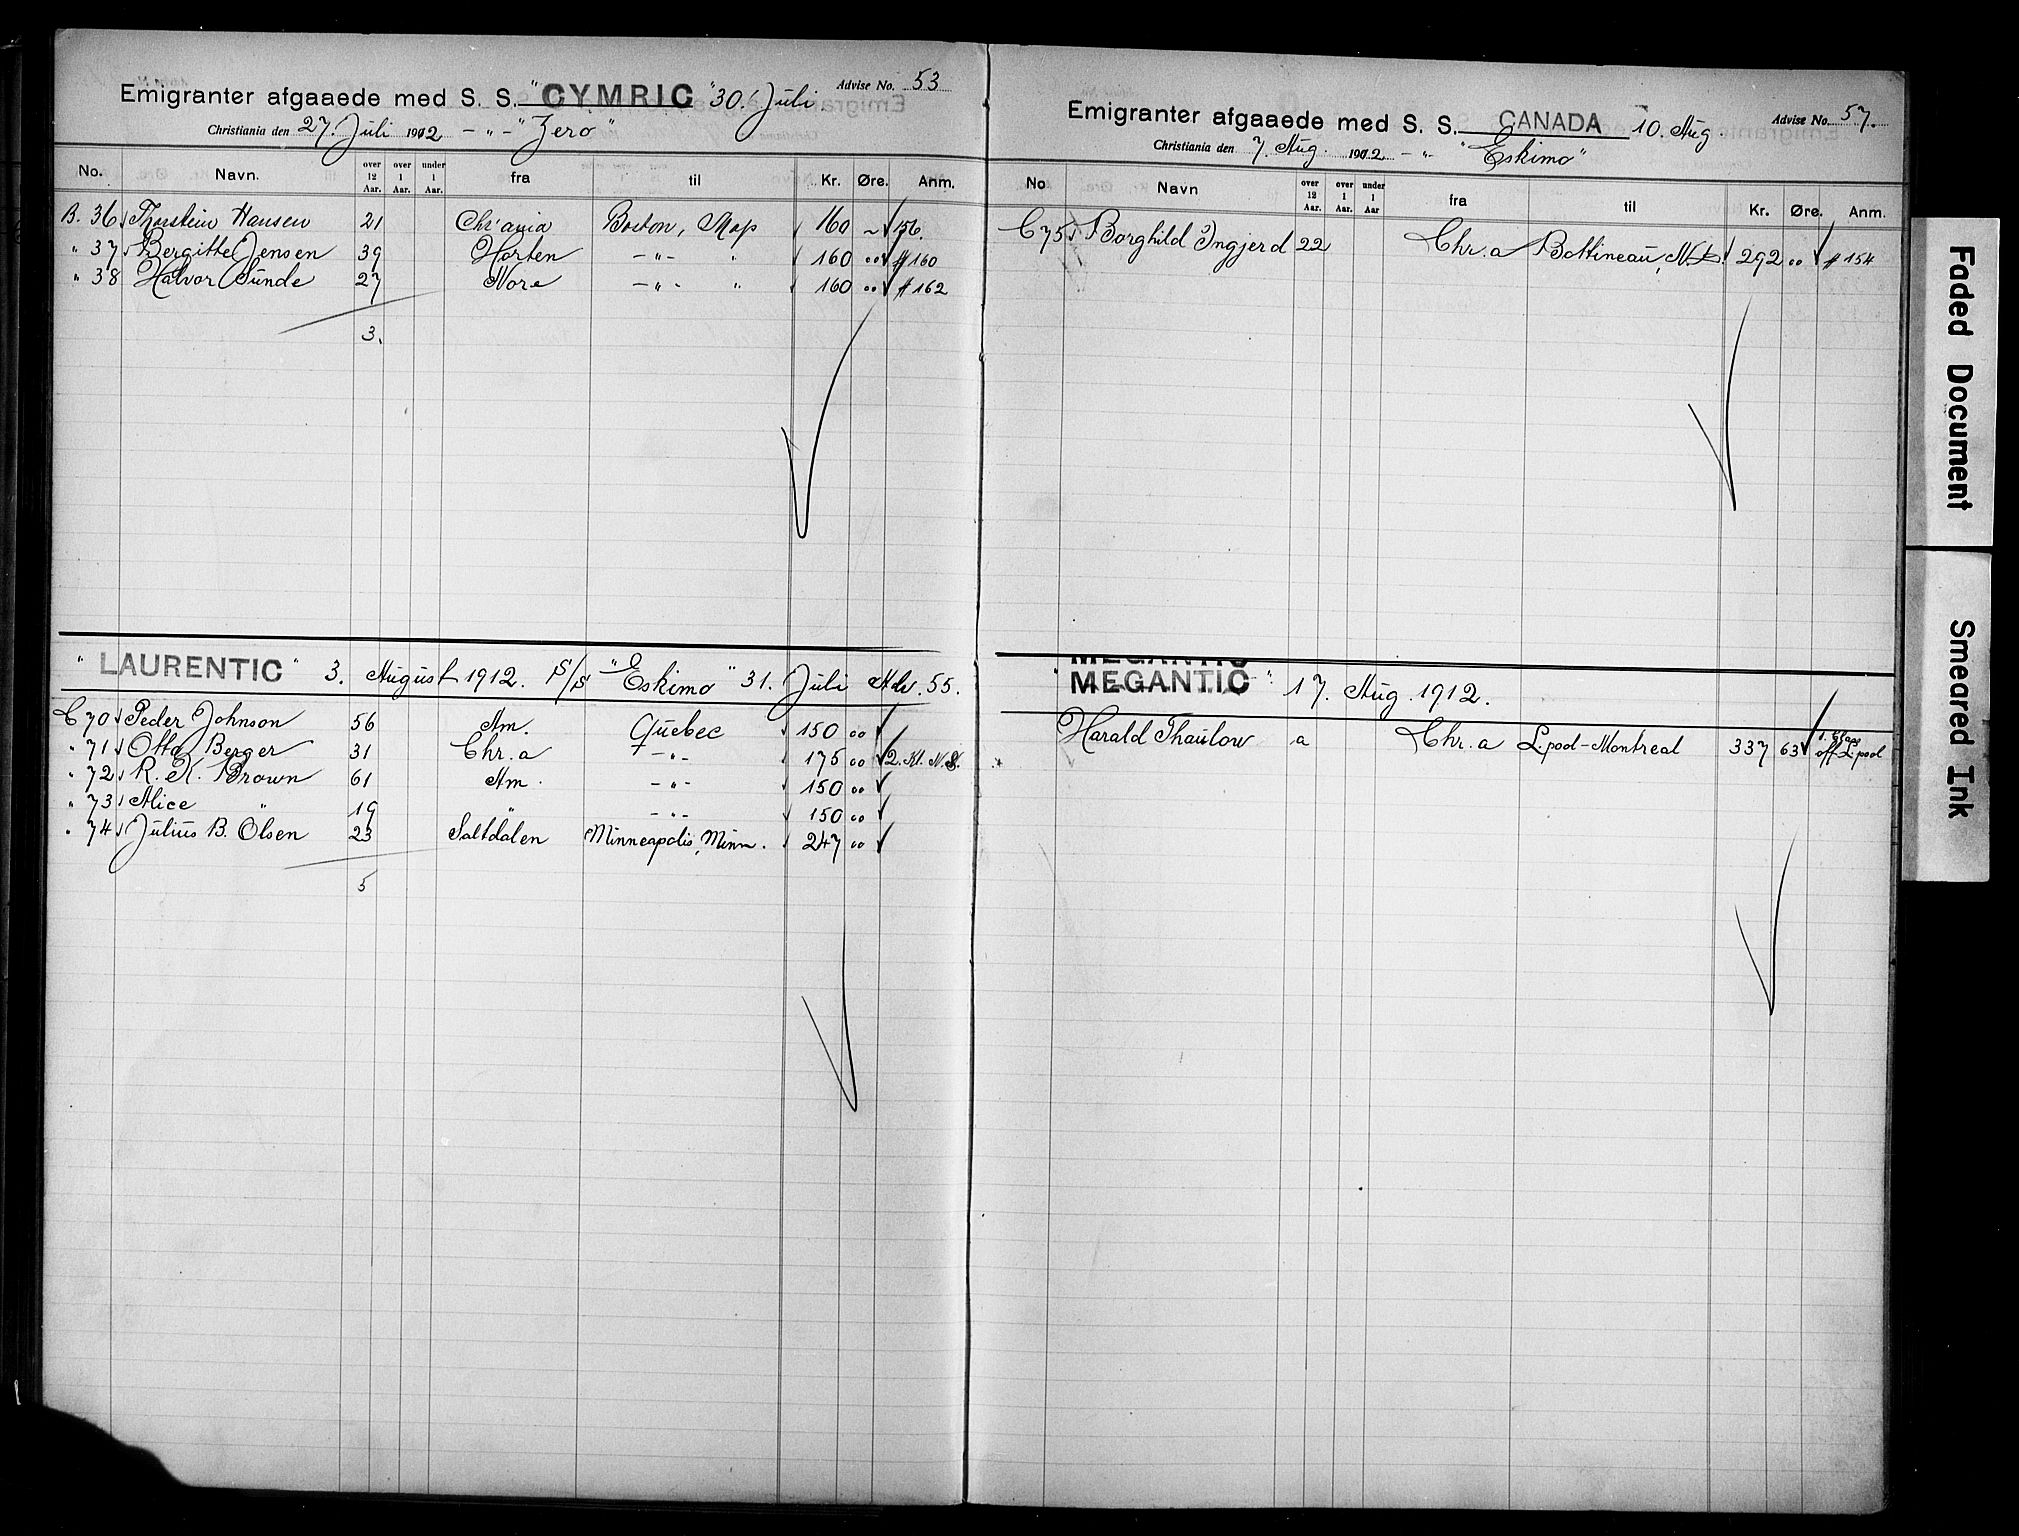 Emigranter afgaaede med S. S. "CYMRIC" 30. Juli Advise No. 53
Christiania den 27. Juli 1912 - " - "Zero"
No. Navn. over 12 Aar. over 1 Aar. under 1 Aar. fra til Kr. Øre. Anm.
B. 36 Thorstein Hansen 21 Chr'ania Boston, Mass 160 156.
" 37 Bergitte Jensen 39 Horten - " - " 160 " # 160
" 38 Halvor Sunde 27 Nore - " - " 160 " # 162
3.
" LAURENTIC " 3. August 1912. S/S "Eskimo" 31. Juli Adv. 55.
C 70 Peder Johnson 56 Am. Quebec 150 00
" 71 Otto Berger 31 Chr.a - " - 175 00 2. Kl. N.S.
" 72 R. K. Brown 61 Am. - " - 150 00
" 73 Alice " 19 " - " - 150 00
" 74 Julius B. Olsen 23 Saltdalen Minneapolis, Minn. 247 00
5
Emigranter afgaaede med S. S. CANADA 10. Aug. Advise No. 57.
Christiania den 7. Aug. 1912 - " - "Eskimo"
No Navn over 12 Aar. over 1 Aar. under 1 Aar fra til Kr. Øre. Anm.
C 75 Borghild Ingjerd 22 Chr.a Bottineau, N.D. 292 00 # 154
MEGANTIC
" MEGANTIC " 17. Aug. 1912.
Harald Thaulow a Chr.a L.pool-Montreal 337 63 1. Class
off L.pool
Faded Document
Smeared Ink